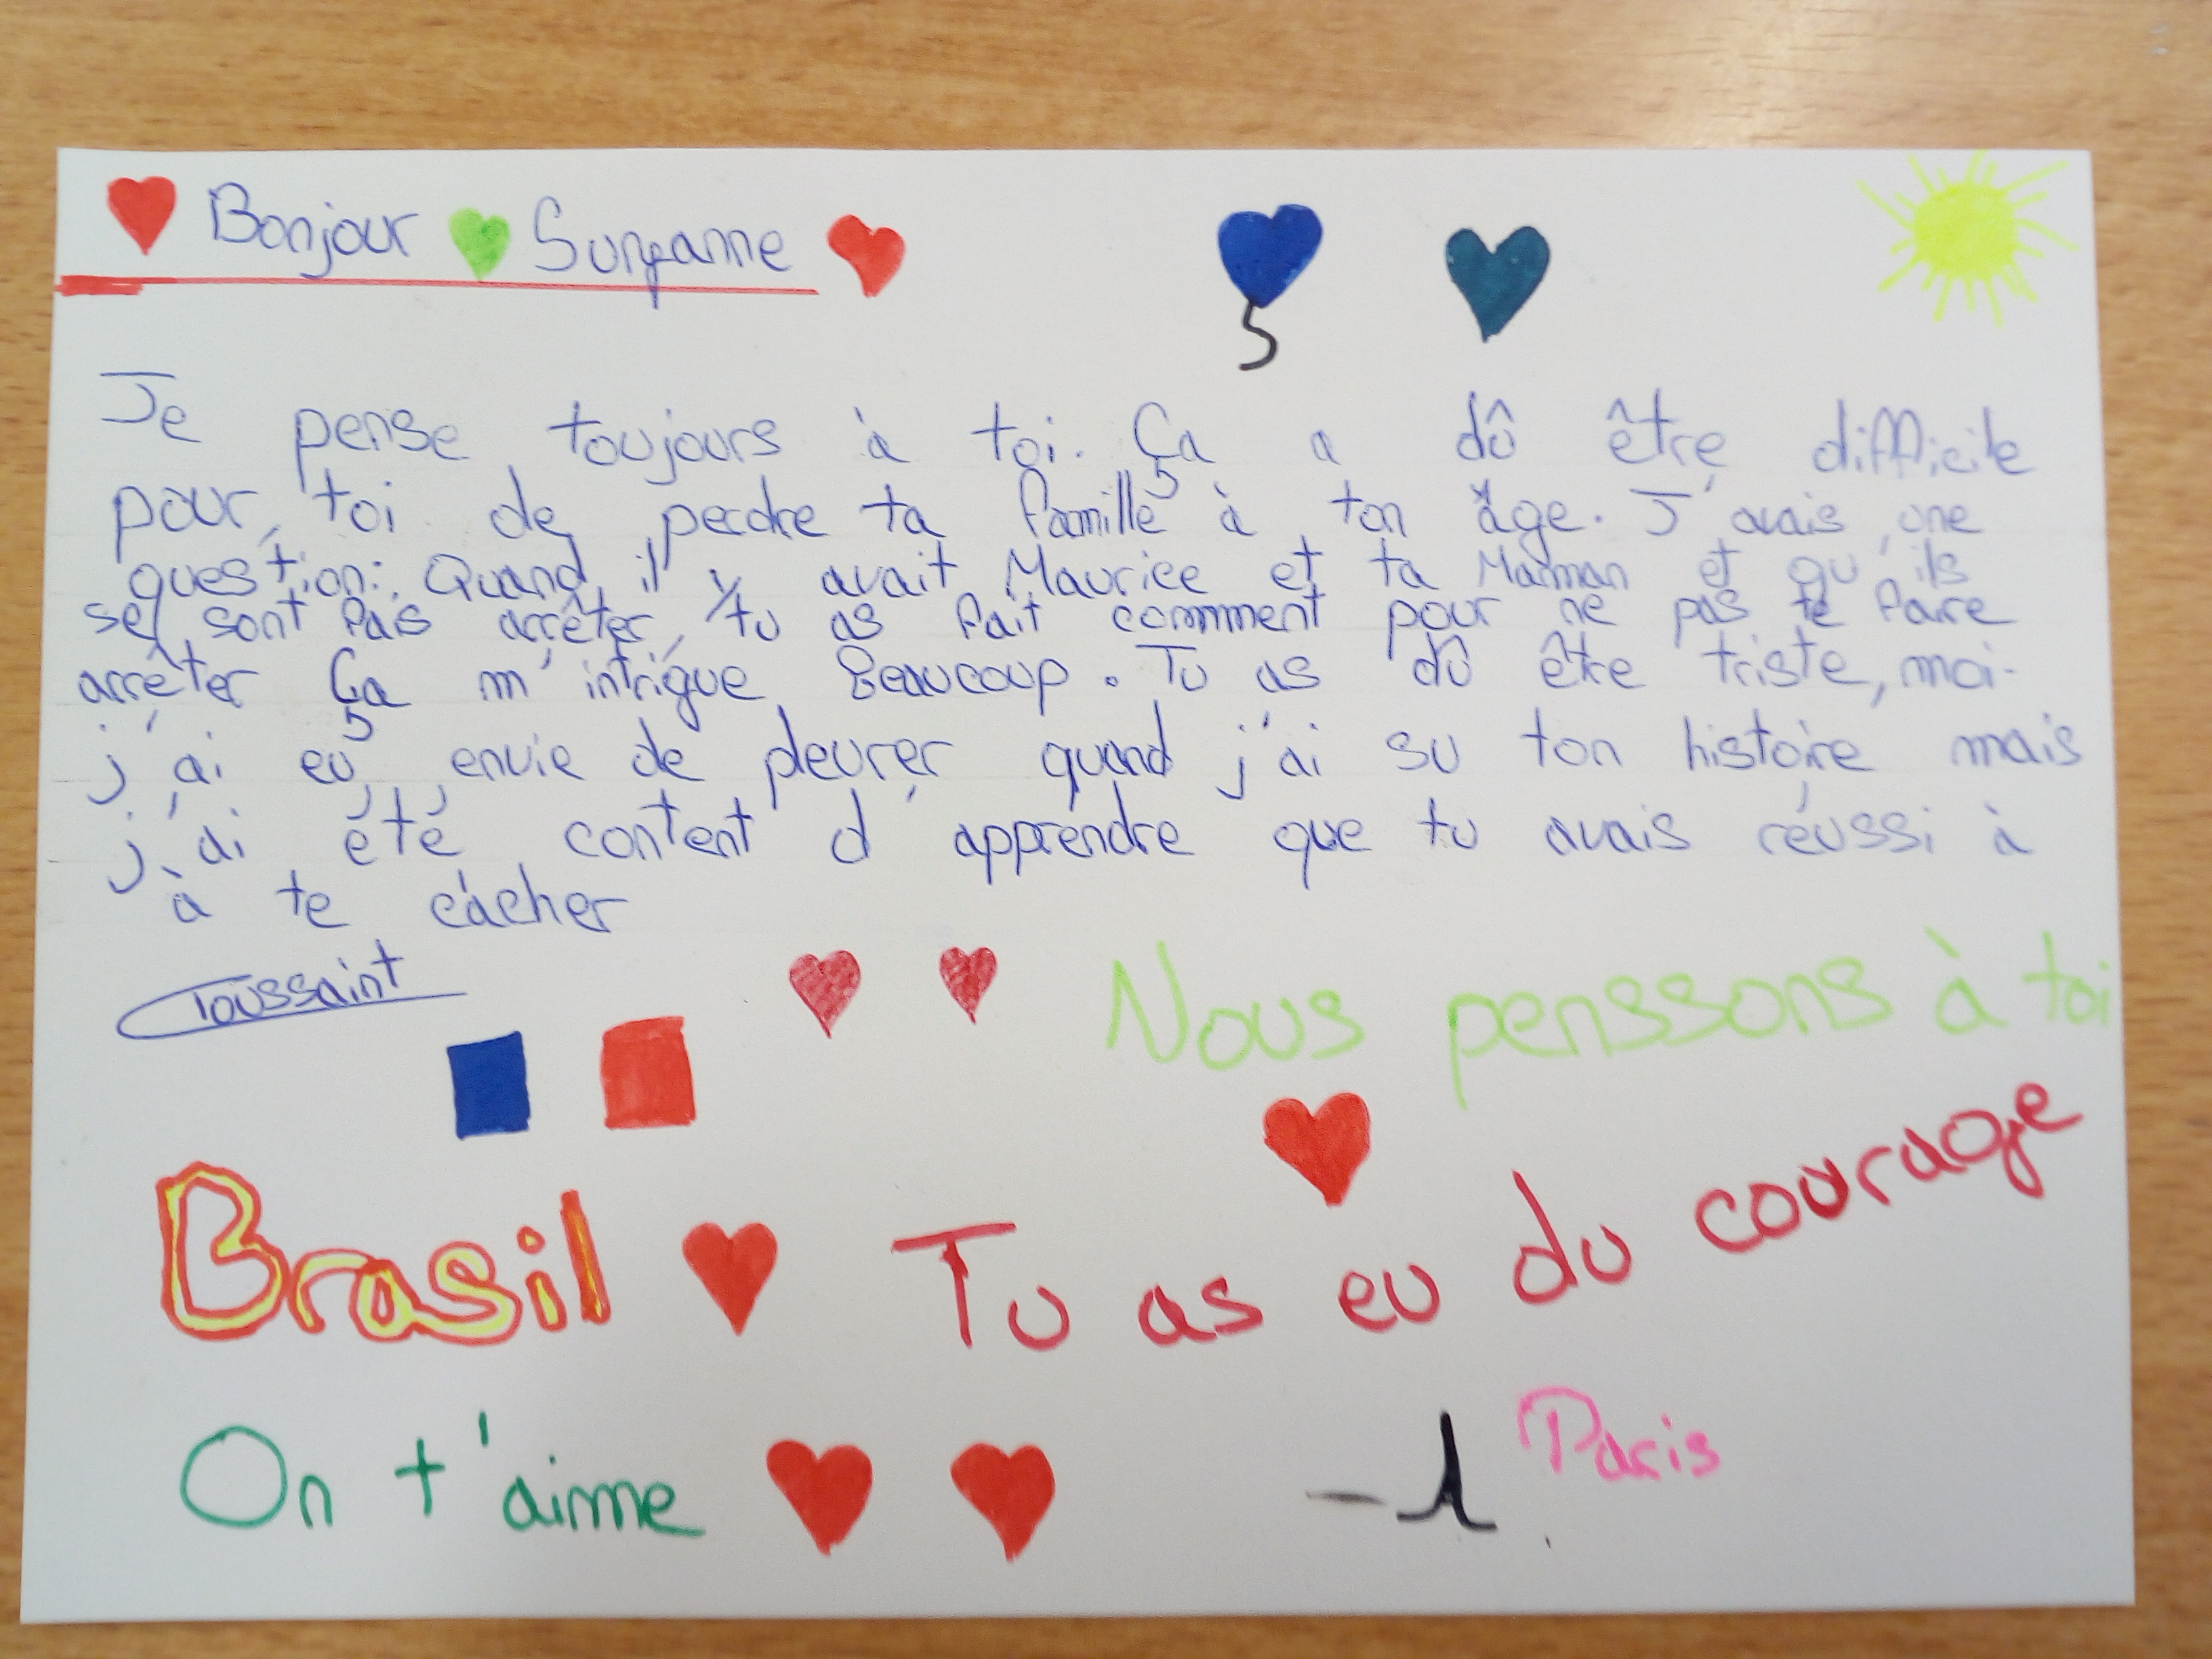 Bonjour Suryanne
Je pense toujours à toi. Ça a dû être difficile
pour toi de perdre ta famille à ton âge. J'avais une
question: Quand il y avait Maurice et ta Maman et qu'ils
se sont fais arrêter, tu as fait comment pour ne pas te faire
arrêter Ça m'intrigue Beaucoup. Tu as dû être triste, moi
j'ai eu envie de pleurer quand j'ai su ton histoire mais
j'ai été content d'apprendre que tu avais réussi à
à te cacher
Toussaint
Nous penssons à toi
Brasil Tu as eu du courage
On t'aime
Paris